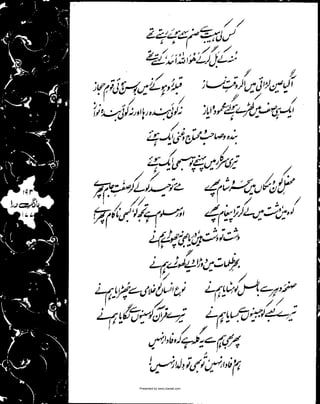 کس کی ہیبت سے صنم سہمے ہوئے رہتے تھے
منہ کے بل گر کے ھو اللہ احد کہتے تھے
آ گیا عین لڑائی میں اگر وقتِ نماز
قبلہ رو ہو کے زمیں بوس ہوئی قومِ حجاز
ایک ہی صف میں کھڑے ہو گئے محمود و ایاز
نہ کوئی بندہ رہا اور نہ کوئی بندہ نواز
بندہ و صاحب و محتاج و غنی ایک ہوئے
تیری سرکار میں پہنچے تو سبھی ایک ہوئے
محفلِ کون و مکاں میں سحر و شام پھرے
مئے توحید کو لے کر صفتِ جام پھرے
کوہ میں دشت میں لے کر ترا پیغام پھرے
اور معلوم ہے تجھ کو کبھی ناکام پھرے
دشت تو دشت ہیں دریا بھی نہ چھوڑے ہم نے
بحرِ ظلمات میں دوڑا دیے گھوڑے ہم نے
صفحۂ دہر سے باطل کو مٹایا ہم نے
نوعِ انساں کو غلامی سے چھڑایا ہم نے
تیرے کعبے کو جبینوں سے بسایا ہم نے
تیرے قرآن کو سینوں سے لگایا ہم نے
پھر بھی ہم سے یہ گلہ ہے کہ وفادار نہیں
ہم وفادار نہیں تو بھی تو دلدار نہیں!
بانگِ درا
Presented by www.ziaraat.com